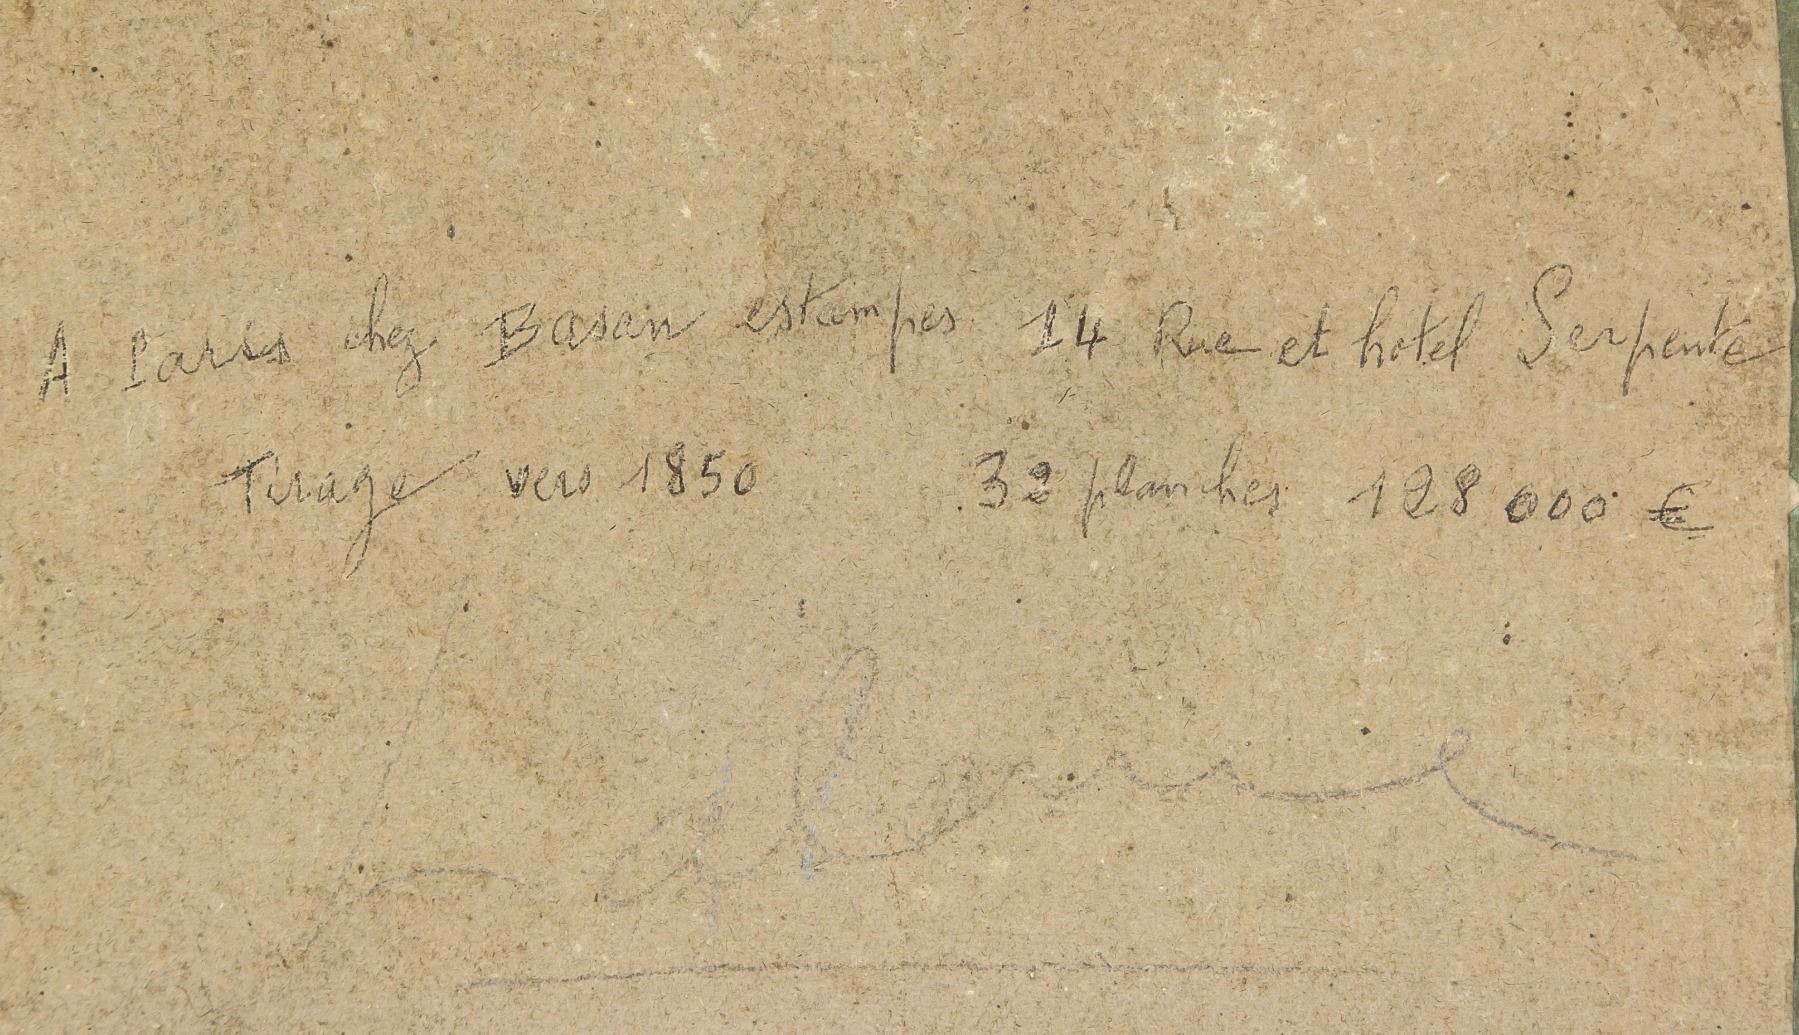 A Paris chez Basan estampes 14 Rue et hotel Serpente
Tirage vers 1850 32 planches 128 000 €